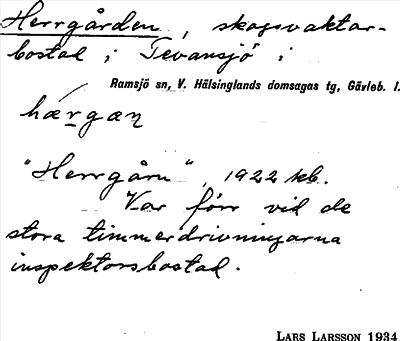 Herrgården, skogsvaktar-
bostad i Tevansjö i
Ramsjö sn, V. Hälsinglands domsagas tg, Gävleb. l.
hǽrgæn
"Herrgårn", 1922 skb.
Var förr vid de
stora timmerdrivningarna
inspektorsbostad.
LARS LARSSON 1934